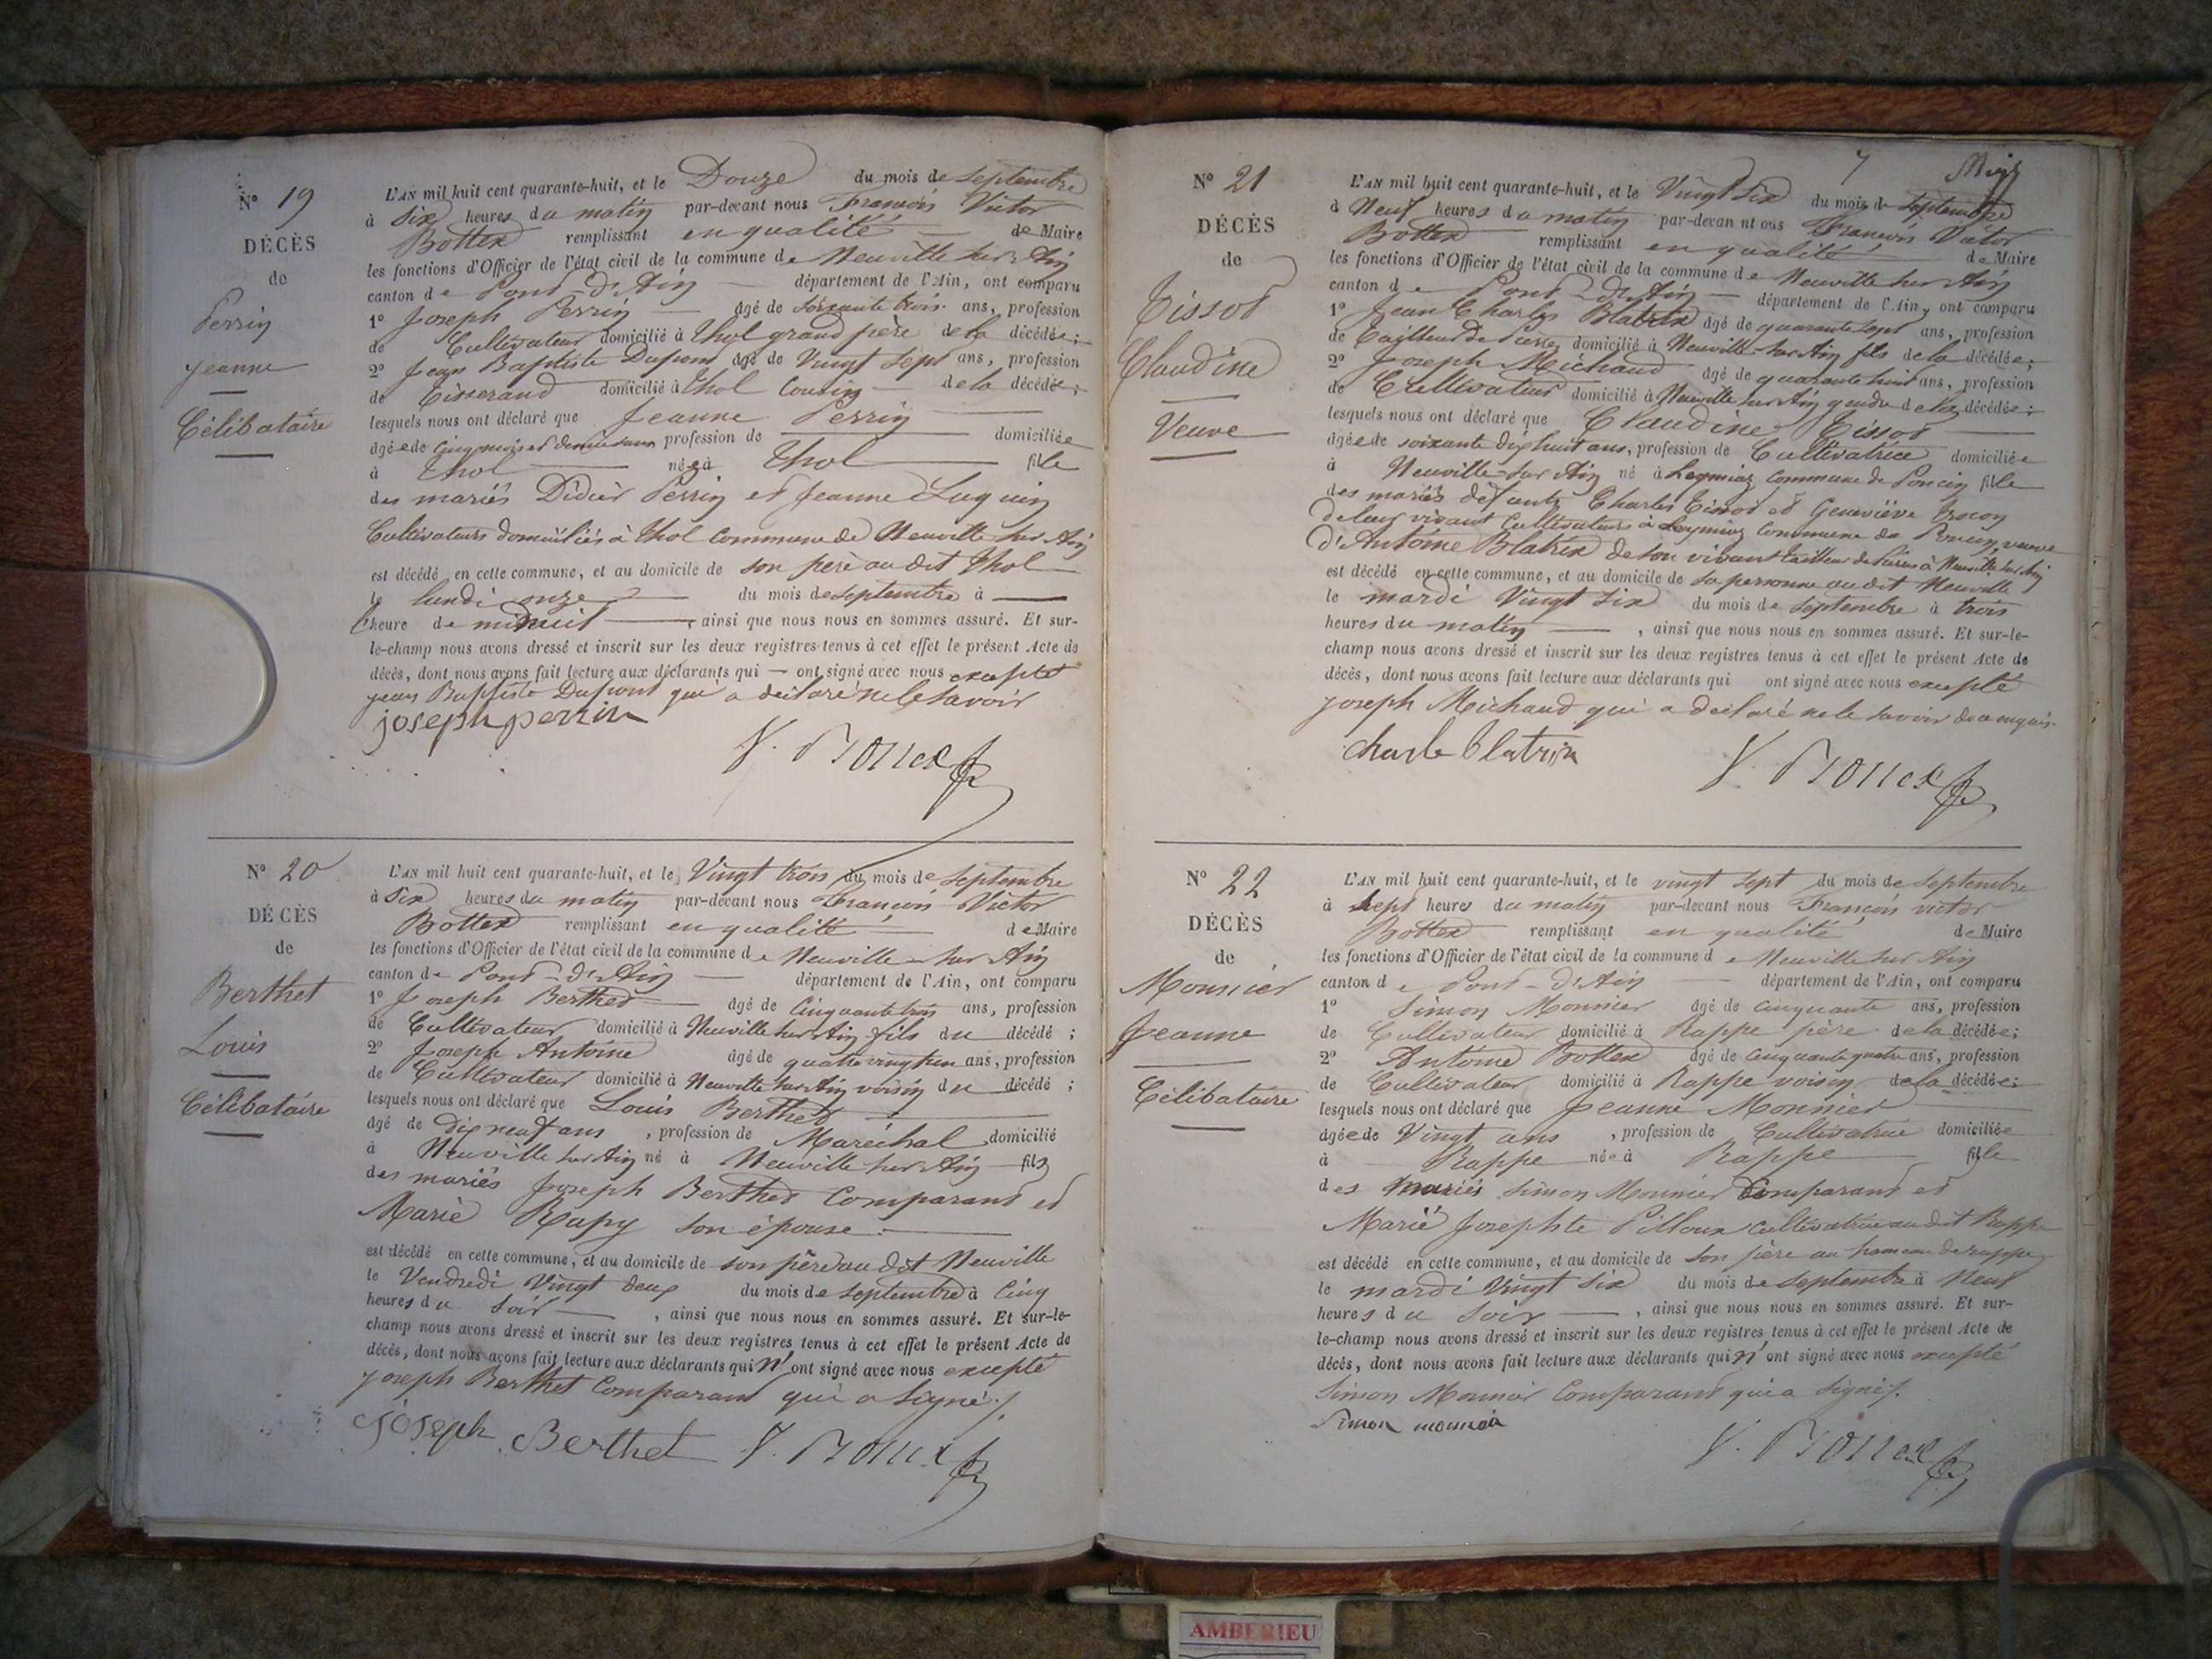 N° 19
DÉCÈS
de
Perrin
Jeanne
Célibataire
L'AN mil huit cent quarante-huit, et le Douze du mois de Septembre
à Six heures du matin par-devant nous François Victor
Bottex remplissant en qualité de Maire
les fonctions d'Officier de l'état civil de la commune de Neuville sur Ain
canton de Pont-d'Ain département de l'Ain, ont comparu
1° Joseph Perrin âgé de Soixante trois ans, profession
de Cultivateur domicilié à Thol grand père de la décédée ;
2° Jean Baptiste Dupont âgé de Vingt Sept ans, profession
de Tisserand domicilié à Thol Cousin de la décédée ;
lesquels nous ont déclaré que Jeanne Perrin
âgée de Cinq mois et demi sans profession de domiciliée
à Thol née à Thol fille
des mariés Didier Perrin et Jeanne Luquin
Cultivateurs domiciliés à Thol Commune de Neuville sur Ain
est décédé en cette commune, et au domicile de son père au dit Thol
le lundi onze du mois de Septembre à
l'heure de minuit , ainsi que nous nous en sommes assuré. Et sur-
le-champ nous avons dressé et inscrit sur les deux registres tenus à cet effet le présent Acte de
décès, dont nous avons fait lecture aux déclarants qui ont signé avec nous excepté
Jean Baptiste Dupont qui a déclaré ne le Savoir
joseph perrin
V. Bottex
N° 20
DÉCÈS
de
Berthet
Louis
Célibataire
L'AN mil huit cent quarante-huit, et le Vingt trois du mois de Septembre
à Six heures du matin par-devant nous François Victor
Bottex remplissant en qualité de Maire
les fonctions d'Officier de l'état civil de la commune de Neuville sur Ain
canton de Pont-d'Ain département de l'Ain, ont comparu
1° Joseph Berthet âgé de Cinquante trois ans, profession
de Cultivateur domicilié à Neuville sur Ain fils du décédé ;
2° Joseph Antoine âgé de quatre vingt un ans, profession
de Cultivateur domicilié à Neuville sur Ain voisin du décédé ;
lesquels nous ont déclaré que Louis Berthet
âgé de dix neuf ans , profession de Maréchal domicilié
à Neuville sur Ain né à Neuville sur Ain fils
des mariés Joseph Berthet Comparant et
Marie Rapy son épouse
est décédé en cette commune, et au domicile de son père au dit Neuville
le Vendredi Vingt deux du mois de Septembre à Cinq
heures du Soir , ainsi que nous nous en sommes assuré. Et sur-le-
champ nous avons dressé et inscrit sur les deux registres tenus à cet effet le présent Acte de
décès, dont nous avons fait lecture aux déclarants qui n' ont signé avec nous excepté
Joseph Berthet Comparant qui a Signé
Joseph Berthet V. Bottex
7
N° 21
DÉCÈS
de
Tissot
Claudine
Veuve
L'AN mil huit cent quarante-huit, et le Vingt Six du mois de Septembre
à Neuf heures du matin par-devan nt ous François Victor
Bottex remplissant en qualité de Maire
les fonctions d'Officier de l'état civil de la commune de Neuville sur Ain
canton de Pont-d'Ain département de l'Ain, ont comparu
1° Jean Charles Blatrix âgé de quarante Sept ans, profession
de Tailleur de Pierres domicilié à Neuville-sur Ain fils de la décédée ;
2° Joseph Michaud âgé de quarante huit ans, profession
de Cultivateur domicilié à Neuville sur Ain gendre de la décédée ;
lesquels nous ont déclaré que Claudine Tissot
âgée de soixante dix huit ans, profession de Cultivatrice domiciliée
à Neuville-sur Ain né à Leymiaz Commune de Poncin fille
des mariés défunts Charles Tissot et Geneviève Trocon
De leur vivant Cultivateurs à Leymiaz Commune de Poncin, veuve
D'Antoine Blatrix de son vivant tailleur de Pierres à Neuville sur Ain
est décédé en cette commune, et au domicile de sa personne au dit Neuville
le mardi Vingt Six du mois de Septembre à trois
heures du matin , ainsi que nous nous en sommes assuré. Et sur-le-
champ nous avons dressé et inscrit sur les deux registres tenus à cet effet le présent Acte de
décès, dont nous avons fait lecture aux déclarants qui ont signé avec nous excepté
Joseph Michaud qui a déclaré ne le savoir de ce enquis.
charle blatrix
V. Bottex
N° 22
DÉCÈS
de
Monnier
Jeanne
Célibataire
L'AN mil huit cent quarante-huit, et le vingt Sept du mois de Septembre
à Sept heures du matin par-devant nous François victor
Bottex remplissant en qualité de Maire
les fonctions d'Officier de l'état civil de la commune de Neuville sur Ain
canton de Pont-d'Ain département de l'Ain, ont comparu
1° Simon Monnier âgé de cinquante ans, profession
de Cultivateur domicilié à Rappe père de la décédée ;
2° Antoine Bottex âgé de Cinquante quatre ans, profession
de Cultivateur domicilié à Rappe voisin de la décédée ;
lesquels nous ont déclaré que Jeanne Monnier
âgée de Vingt ans , profession de Cultivatrice domiciliée
à Rappe née à Rappe fille
des mariés Simon Monnier Comparant et
Marie Josephte Pilloux cultivatrice au dit Rappe
est décédé en cette commune, et au domicile de son père au hameau de rappe
le mardi Vingt Six du mois de Septembre à Neuf
heures du Soir , ainsi que nous nous en sommes assuré. Et sur-
le-champ nous avons dressé et inscrit sur les deux registres tenus à cet effet le présent Acte de
décès, dont nous avons fait lecture aux déclarants qui n' ont signé avec nous excepté
Simon Monnier Comparant qui a Signé
Simon monnier
V. Bottex
AMBERIEU